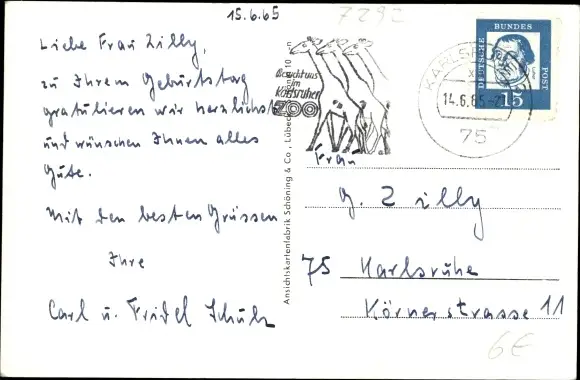 15.6.65
7292
Liebe Frau Zilly,
zu Ihrem Geburtstag
gratulieren wir herzlichst
und wünschen Ihnen alles
Gute.
Mit den besten Grüssen
Ihre
Carl u. Fridel Schulz
Ansichtskartenfabrik Schöning & Co., Lübeck
Besucht uns
im
Karlsruher
ZOO
KARLSR
14.6.65
75
DEUTSCHE
BUNDES
POST
15
Frau
G. Zilly
75 Karlsruhe
Körnerstrasse 11
6€